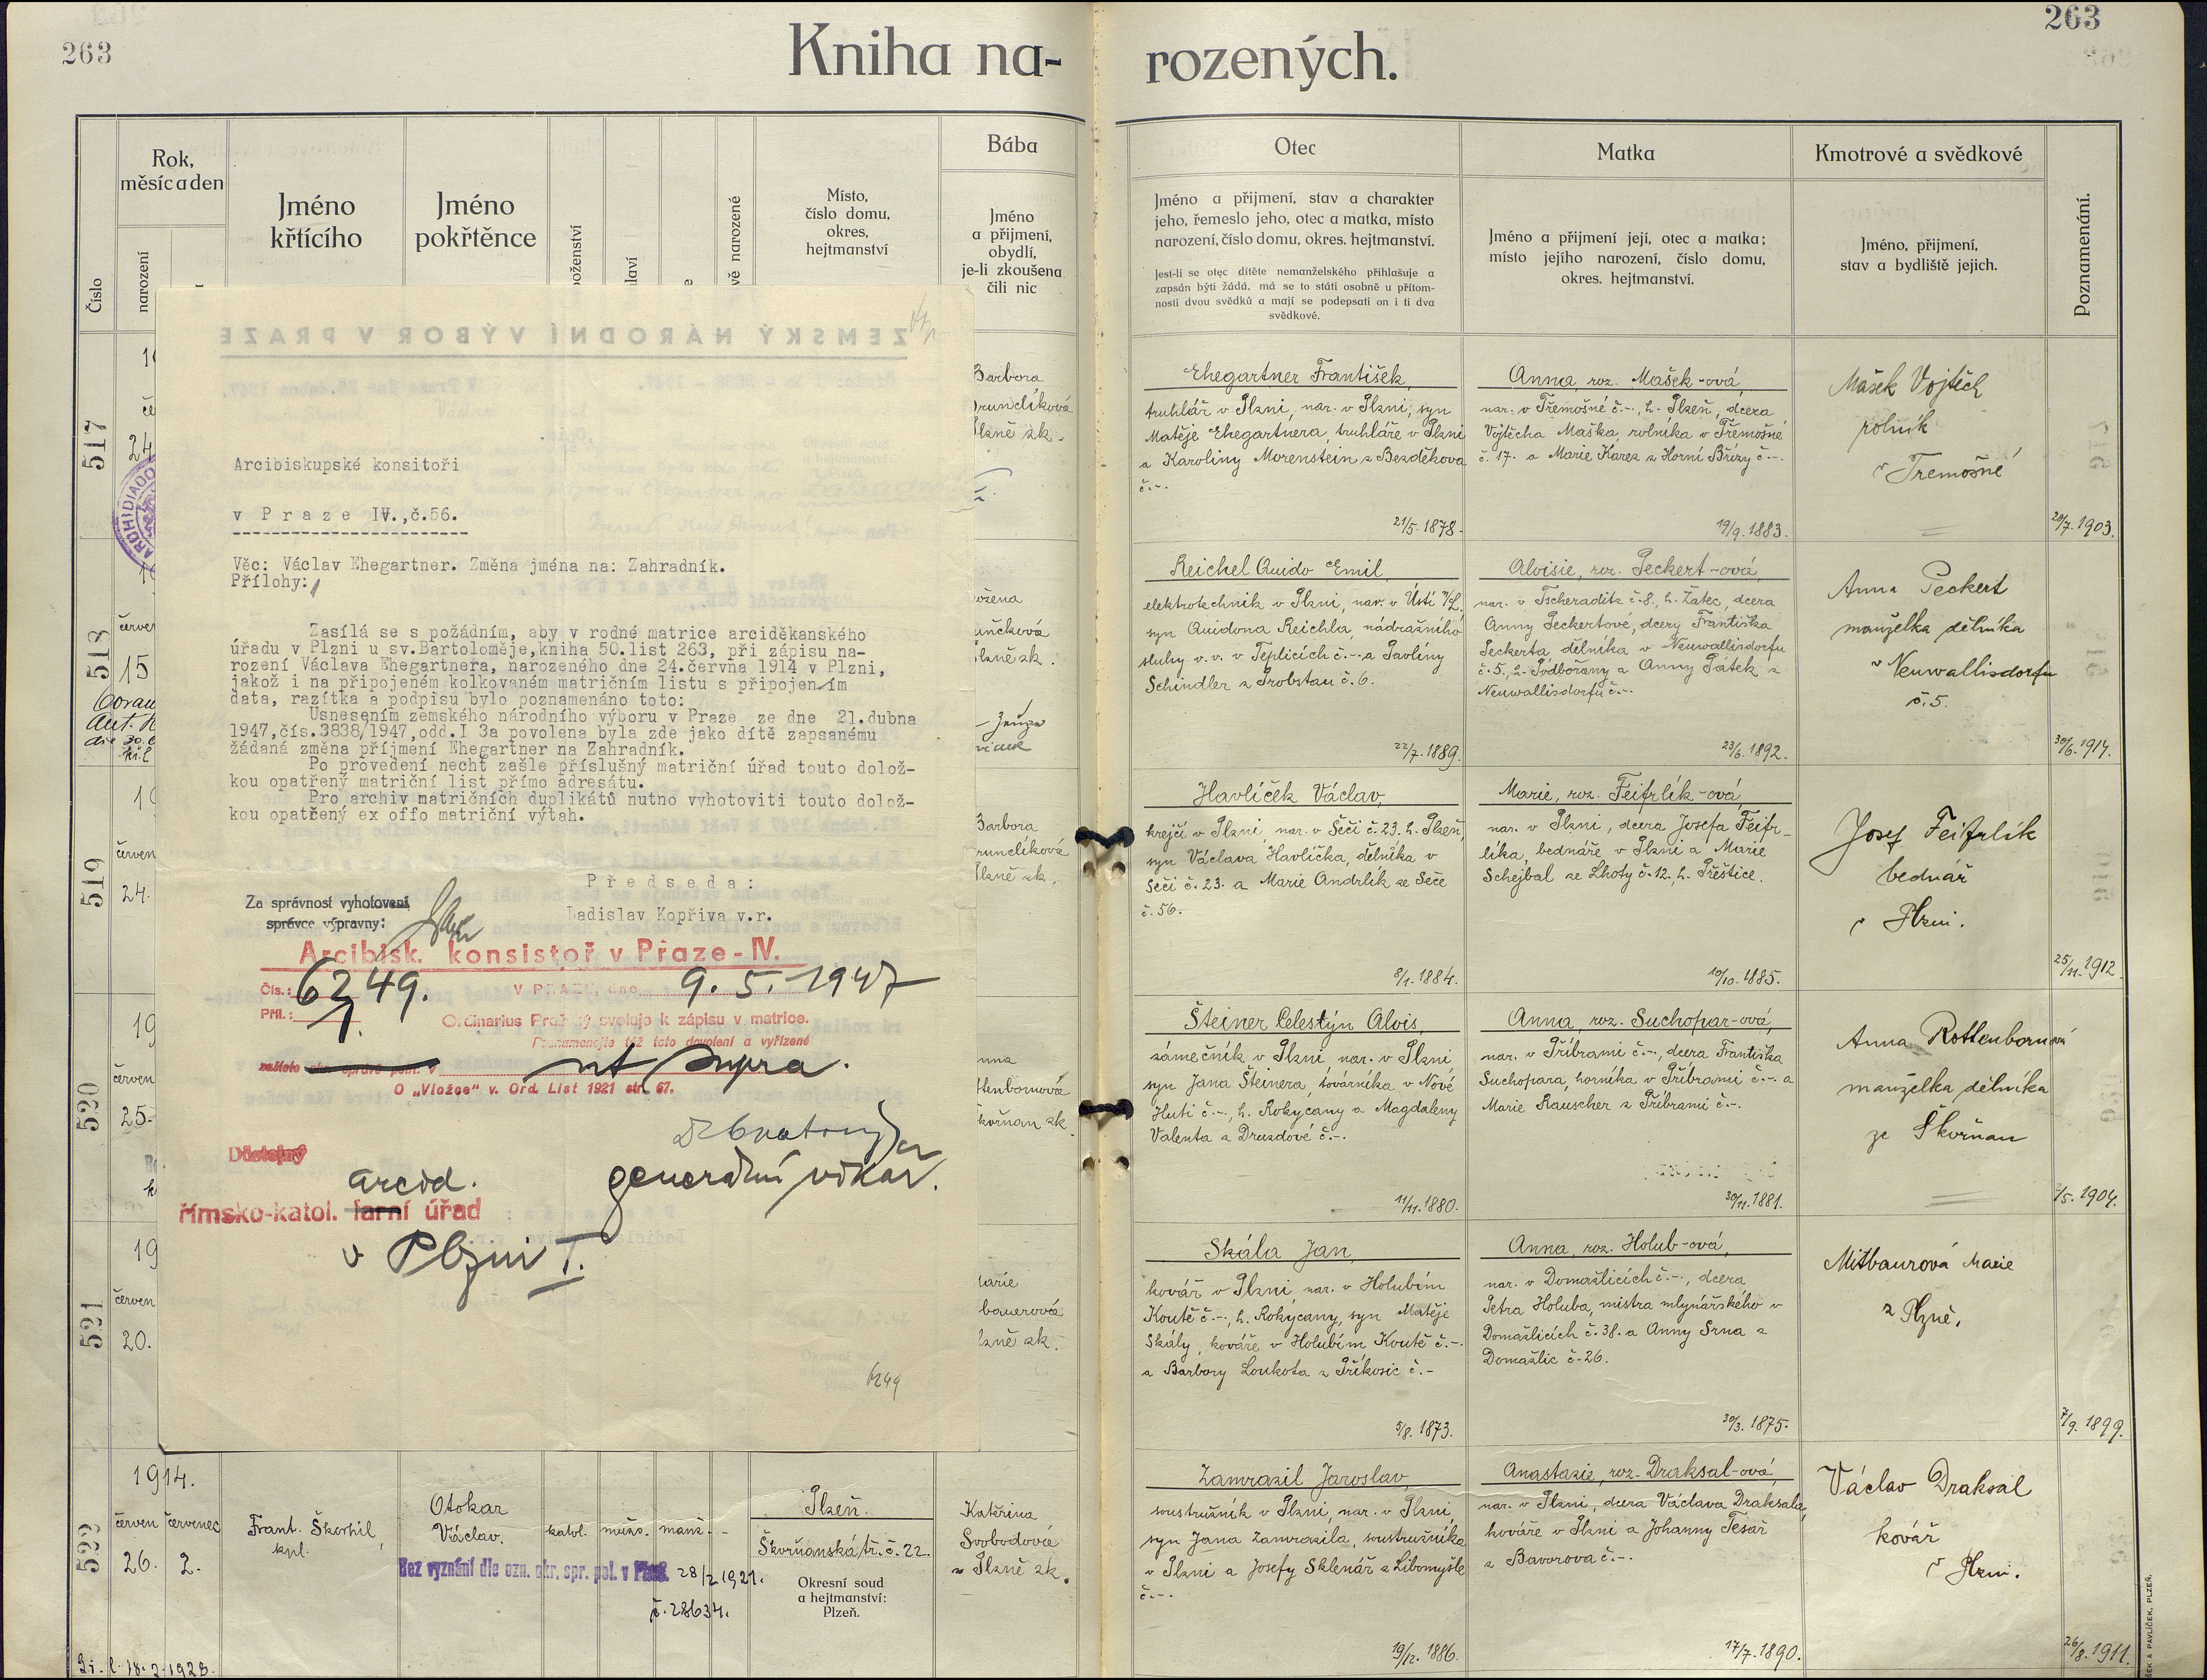 263
263
Kniha na-
rozených.
Číslo
Rok,
měsíc a den
narození
Jméno
křtícího
Jméno
pokřtěnce
Místo,
číslo domu,
okres,
hejtmanství
Bába
Jméno
a přijmení,
obydlí,
je-li zkoušena
čili nic
Otec
Jméno a přijmení, stav a charakter
jeho, řemeslo jeho, otec a matka, místo
narození, číslo domu, okres. hejtmanství.
Jest-li se otec dítěte nemanželského přihlašuje a
zapsán býti žádá, má se to státi osobně u přítom-
nosti dvou svědků a mají se podepsati on i ti dva
svědkové.
Matka
Jméno a přijmení její, otec a matka;
místo jejího narození, číslo domu,
okres. hejtmanství.
Kmotrové a svědkové
Jméno, přijmení,
stav a bydliště jejich.
Poznamenání.
Arcibiskupské konsitoři
v Praze IV.,č.56.
Věc: Václav Ehegartner. Změna jména na: Zahradník.
Přílohy:
Zasílá se s požádním, aby v rodné matrice arciděkanského
úřadu v Plzni u sv.Bartoloměje,kniha 50.list 263, při zápisu na-
rození Václava Ehegartnera, narozeného dne 24.června 1914 v Plzni,
jakož i na připojeném kolkovaném matričním listu s připojením
data, razítka a podpisu bylo poznamenáno toto:
Usnesením zemského národního výboru v Praze ze dne 21.dubna
1947,čís.3838/1947,odd.I 3a povolena byla zde jako dítě zapsanému
žádaná změna příjmení Ehegartner na Zahradník.
Po provedení nechť zašle příslušný matriční úřad touto dolož-
kou opatřený matriční list přímo adresátu.
Pro archiv matričních duplikátů nutno vyhotoviti touto dolož-
kou opatřený ex offo matriční výtah.
Předseda:
Ladislav Kopřiva v.r.
Za správnost vyhotovení
správce výpravny:
Arcibisk. konsistoř v Praze-IV.
Čís.: 6249. V PRAZE, dne 9. 5. 1947
Příl.: 1.
Ordinarius Pražský svoluje k zápisu v matrice.
Poznamenejte též toto dovolení a vyřízené
zašlete
ut supra.
O „Vložce" v. Ord. List 1921 str. 67.
generální vikář.
Důstojný
arcid.
římsko-katol. farní úřad
v Plzni I.
6249
517
24
Barbora
Plzně zk.
Ehegartner František,
truhlář v Plzni, nar. v Plzni, syn
Matěje Ehegartnera, truhláře v Plzni
a Karoliny Morenstein z Bezděkova
č.-.
21/5. 1878.
Anna, roz. Mašek-ová,
nar. v Třemošné č.-., h. Plzeň, dcera
Vojtěcha Maška, rolníka v Třemošné
č. 17. a Marie Karez z Horní Břízy č.-.
19/9. 1883.
Mašek Vojtěch
rolník
v Třemošné
20/7. 1903.
518
15
Reichel Quido Emil,
elektrotechnik v Plzni, nar. v Ústí n/L.
syn Quidona Reichla, nádražního
sluhy v. v. v Teplicích č.-. a Pavlíny
Schindler z Probstau č. 6.
22/7. 1889.
Aloisie, roz. Peckert-ová,
nar. v Tscheraditz č. 8., h. Žatec, dcera
Anny Peckertové, dcery Františka
Peckerta dělníka v Neuwallisdorfu
č. 5., h. Podbořany a Anny Pátek z
Neuwallisdorfu č.-.
23/6. 1892.
Anna Peckert
manželka dělníka
v Neuwallisdorfu
č. 5.
30/6. 1914.
519
červen
24.
Barbora
Plzně zk.
Havlíček Václav,
krejčí v Plzni, nar. v Seči č. 23. h. Plzeň,
syn Václava Havlíčka, dělníka v
Seči č. 23. a Marie Andrlík ze Seče
č. 56.
8/1. 1884.
Marie, roz. Feifrlík-ová,
nar. v Plzni, dcera Josefa Feifr-
líka, bednáře v Plzni a Marie
Schejbal ze Lhoty č. 12., h. Přeštice.
10/10. 1885.
Josef Feifrlík
bednář
v Plzni.
25/11. 1912.
520
červen
25.
Steiner Celestýn Alois,
zámečník v Plzni, nar. v Plzni,
syn Jana Šteinera, továrníka v Nové
Huti č.-., h. Rokycany a Magdaleny
Valenta z Druzdové č.-.
11/11. 1880.
Anna, roz. Suchopar-ová,
nar. v Příbrami č.-., dcera Františka
Suchopara, horníka v Příbrami č.-. a
Marie Rauscher z Příbrami č.-.
30/11. 1881.
Anna Rottenbornová
manželka dělníka
ze Škvrňan
/5. 1904.
521
červen
20.
Skála Jan,
kovář v Plzni, nar. v Holubím
Koutě č.-., h. Rokycany, syn Matěje
Skály, kováře v Holubím Koutě č.-.
a Barbory Loukota z Příkosic č.-
5/8. 1873.
Anna, roz. Holub-ová,
nar. v Domažlicích č.-., dcera
Petra Holuba, mistra mlynářského v
Domažlicích č. 38. a Anny Srna z
Domažlic č. 26.
30/3. 1875.
Mitbaurová Marie
z Plzně.
7/9. 1899.
522
1914.
červen červenec
26. 2.
Frant. Škorpil,
kpl.
Otokar
Václav.
katol. mužs. manž. -
Bez vyznání dle ozn. okr. spr. pol. v Plzni. 28/2 1921.
č. 28634.
Plzeň.
Škvrňanská tř. č. 22.
Okresní soud
a hejtmanství:
Plzeň.
Kateřina
Svobodová
v Plzně zk.
Zamrazil Jaroslav,
soustružník v Plzni, nar. v Plzni,
syn Jana Zamrazila, soustružníka
v Plzni a Josefy Sklenář z Libomyšle
č.-.
19/12. 1886.
Anastazie, roz. Draksal-ová,
nar. v Plzni, dcera Václava Draksala,
kováře v Plzni a Johanny Tesař
z Bavorova č.-.
17/7. 1890.
Václav Draksal
kovář
v Plzni.
26/8. 1911.